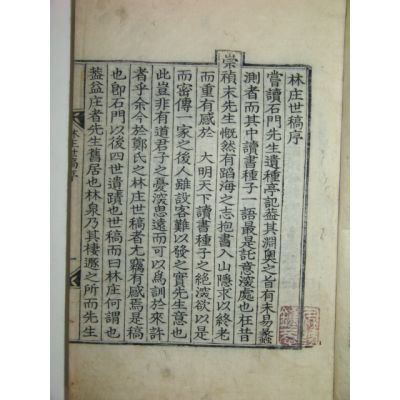 林庄世稿序
嘗讀石門先生遺種亭記盖其淵奧之旨有未易蠡
測者而其中讀書種子一語最是託意深處也在昔
崇禎末先生慨然有蹈海之志抱書入山隱求以終老
而重有感於 大明天下讀書種子之絶深欲以是
而密傳一家之後人雖設客難以發之實先生意也
此豈非有道君子之憂深思遠而可以爲訓於來許
者乎余今於鄭氏之林庄世稿者尤竊有感焉是稿
也卽石門以後四世遺蹟也世稿而曰林庄何謂也
盖益庄者先生舊居也林泉乃其棲遯之所而先生
林庄世稿序 一